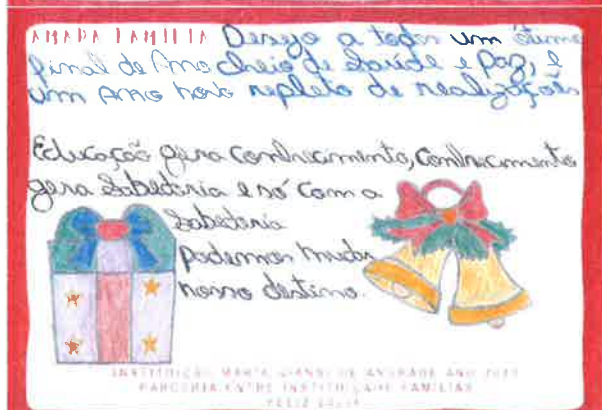 AMADA FAMILIA Desejo a todos um ótimo
final de Ano cheio de Saúde e paz, e
um Ano novo repleto de realizações
Educação gera conhecimento, conhecimento
gera Sabedoria e só com a
Sabedoria
podemos mudar
nosso destino.
INSTITUIÇÃO MARIA DE ANDRADE ANO
PARCERIA ENTRE INSTITUIÇÃO E FAMILIAS
FELIZ